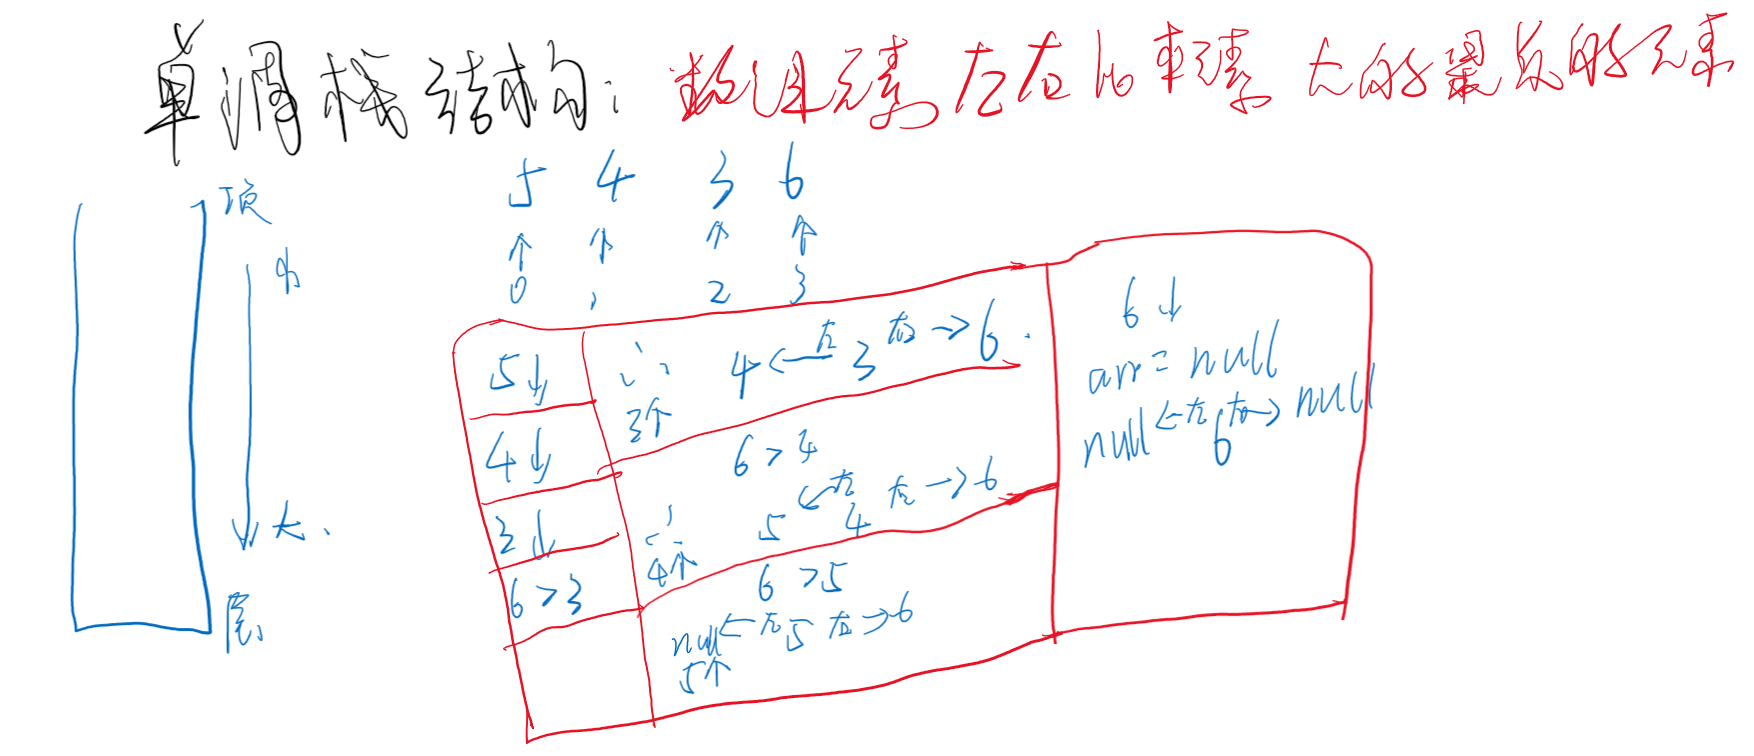 单调栈结构：数组元素左右比本元素大的最近的元素
顶
小
大、
底
5 4 3 6
↑ ↑ ↑ ↑
0 1 2 3
5↓
4↓
3↓
6>3
∴
3个
4 ←左 3 右→ 6.
6>4
4个
5 ←左 4 右→ 6
6>5
null ←左 5 右→ 6
5个
6↓
arr = null
null ←左 6 右→ null